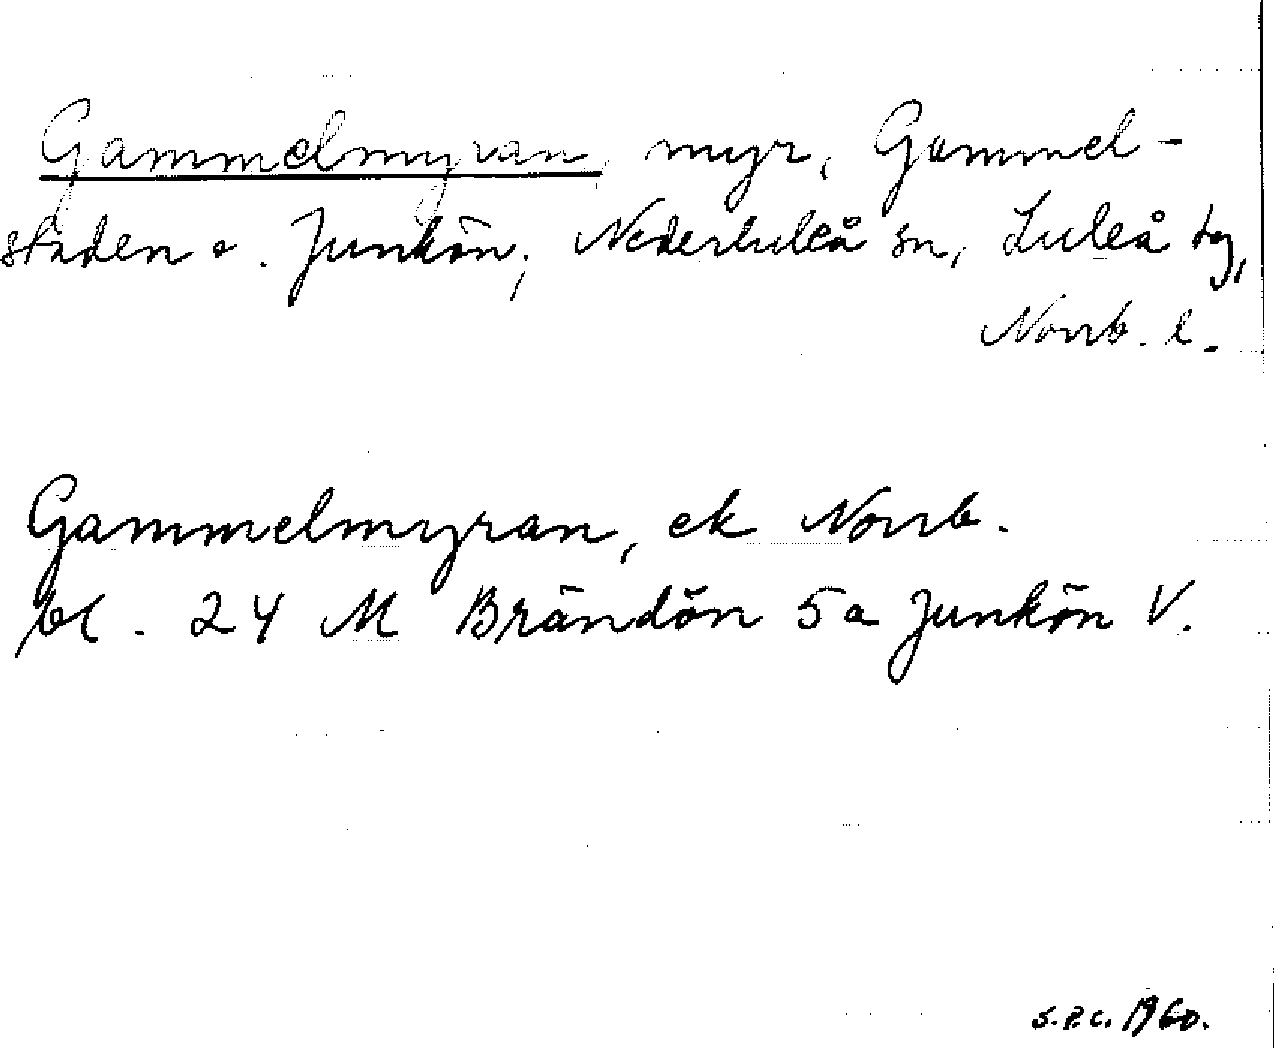 Gammelmyran, myr, Gammel-
staden o. Junkön, Nederluleå sn, Luleå tg,
Norrb. l.
Gammelmyran, ek Norrb.
bl. 24 M Brändön 5a Junkön V.
S.P.C. 1960.